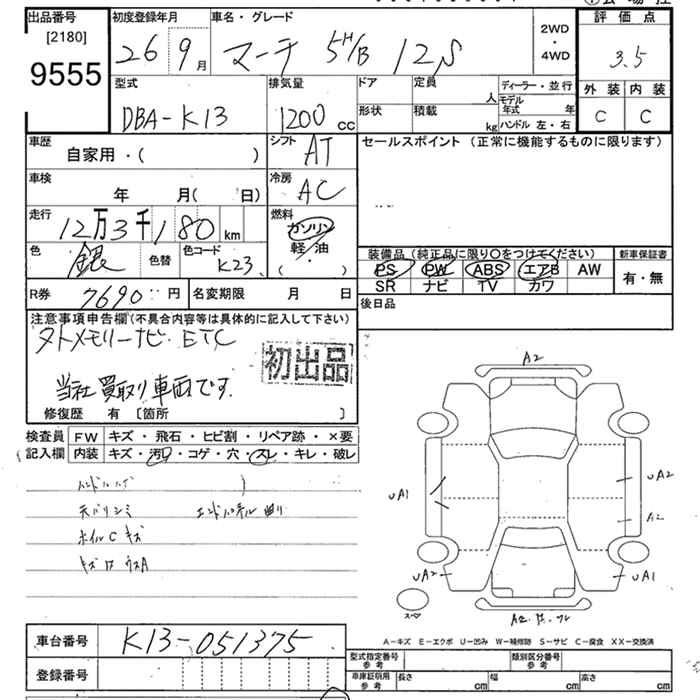 出品番号
[2180]
9555
初度登録年月
26 9月
車名・グレード
マーチ 5H/B 12S
2WD
・
4WD
評価点
3.5
外装 内装
C C
型式
DBA-K13
排気量
1200 cc
ドア
定員
人
形状
積載
kg
ディーラー・並行
モデル年式 年
ハンドル 左・右
車歴
自家用・( )
シフト
AT
セールスポイント (正常に機能するものに限ります)
車検
年 月( 日)
冷房
AC
走行
12万3千180 km
燃料
ガソリン
軽・油
( ・ )
色
銀
色替
色コード
K23
装備品 (純正品に限り○をつけてください)
PS PW ABS エアB AW
SR ナビ TV カワ
新車保証書
有・無
R券 7690 円
名変期限 月 日
後日品
注意事項申告欄 (不具合内容等は具体的に記入して下さい)
メモリーナビ・ETC
初出品
当社買取り車両です
修復歴 有 [箇所 ]
検査員
記入欄
FW キズ・飛石・ヒビ割・リペア跡・×要
内装 キズ・汚れ・コゲ・穴・スレ・キレ・破レ
天バリシミ
ホイルCキズ
A2
UA1
UA2
A2
UA2
UA1
スペア
A-キズ E-エクボ U-凹み W-補修跡 S-サビ C-腐食 XX-交換済
車台番号 K13-051375
登録番号
型式指定番号
参考
類別区分番号
参考
車庫証明用
参考
長さ cm
幅 cm
高さ cm